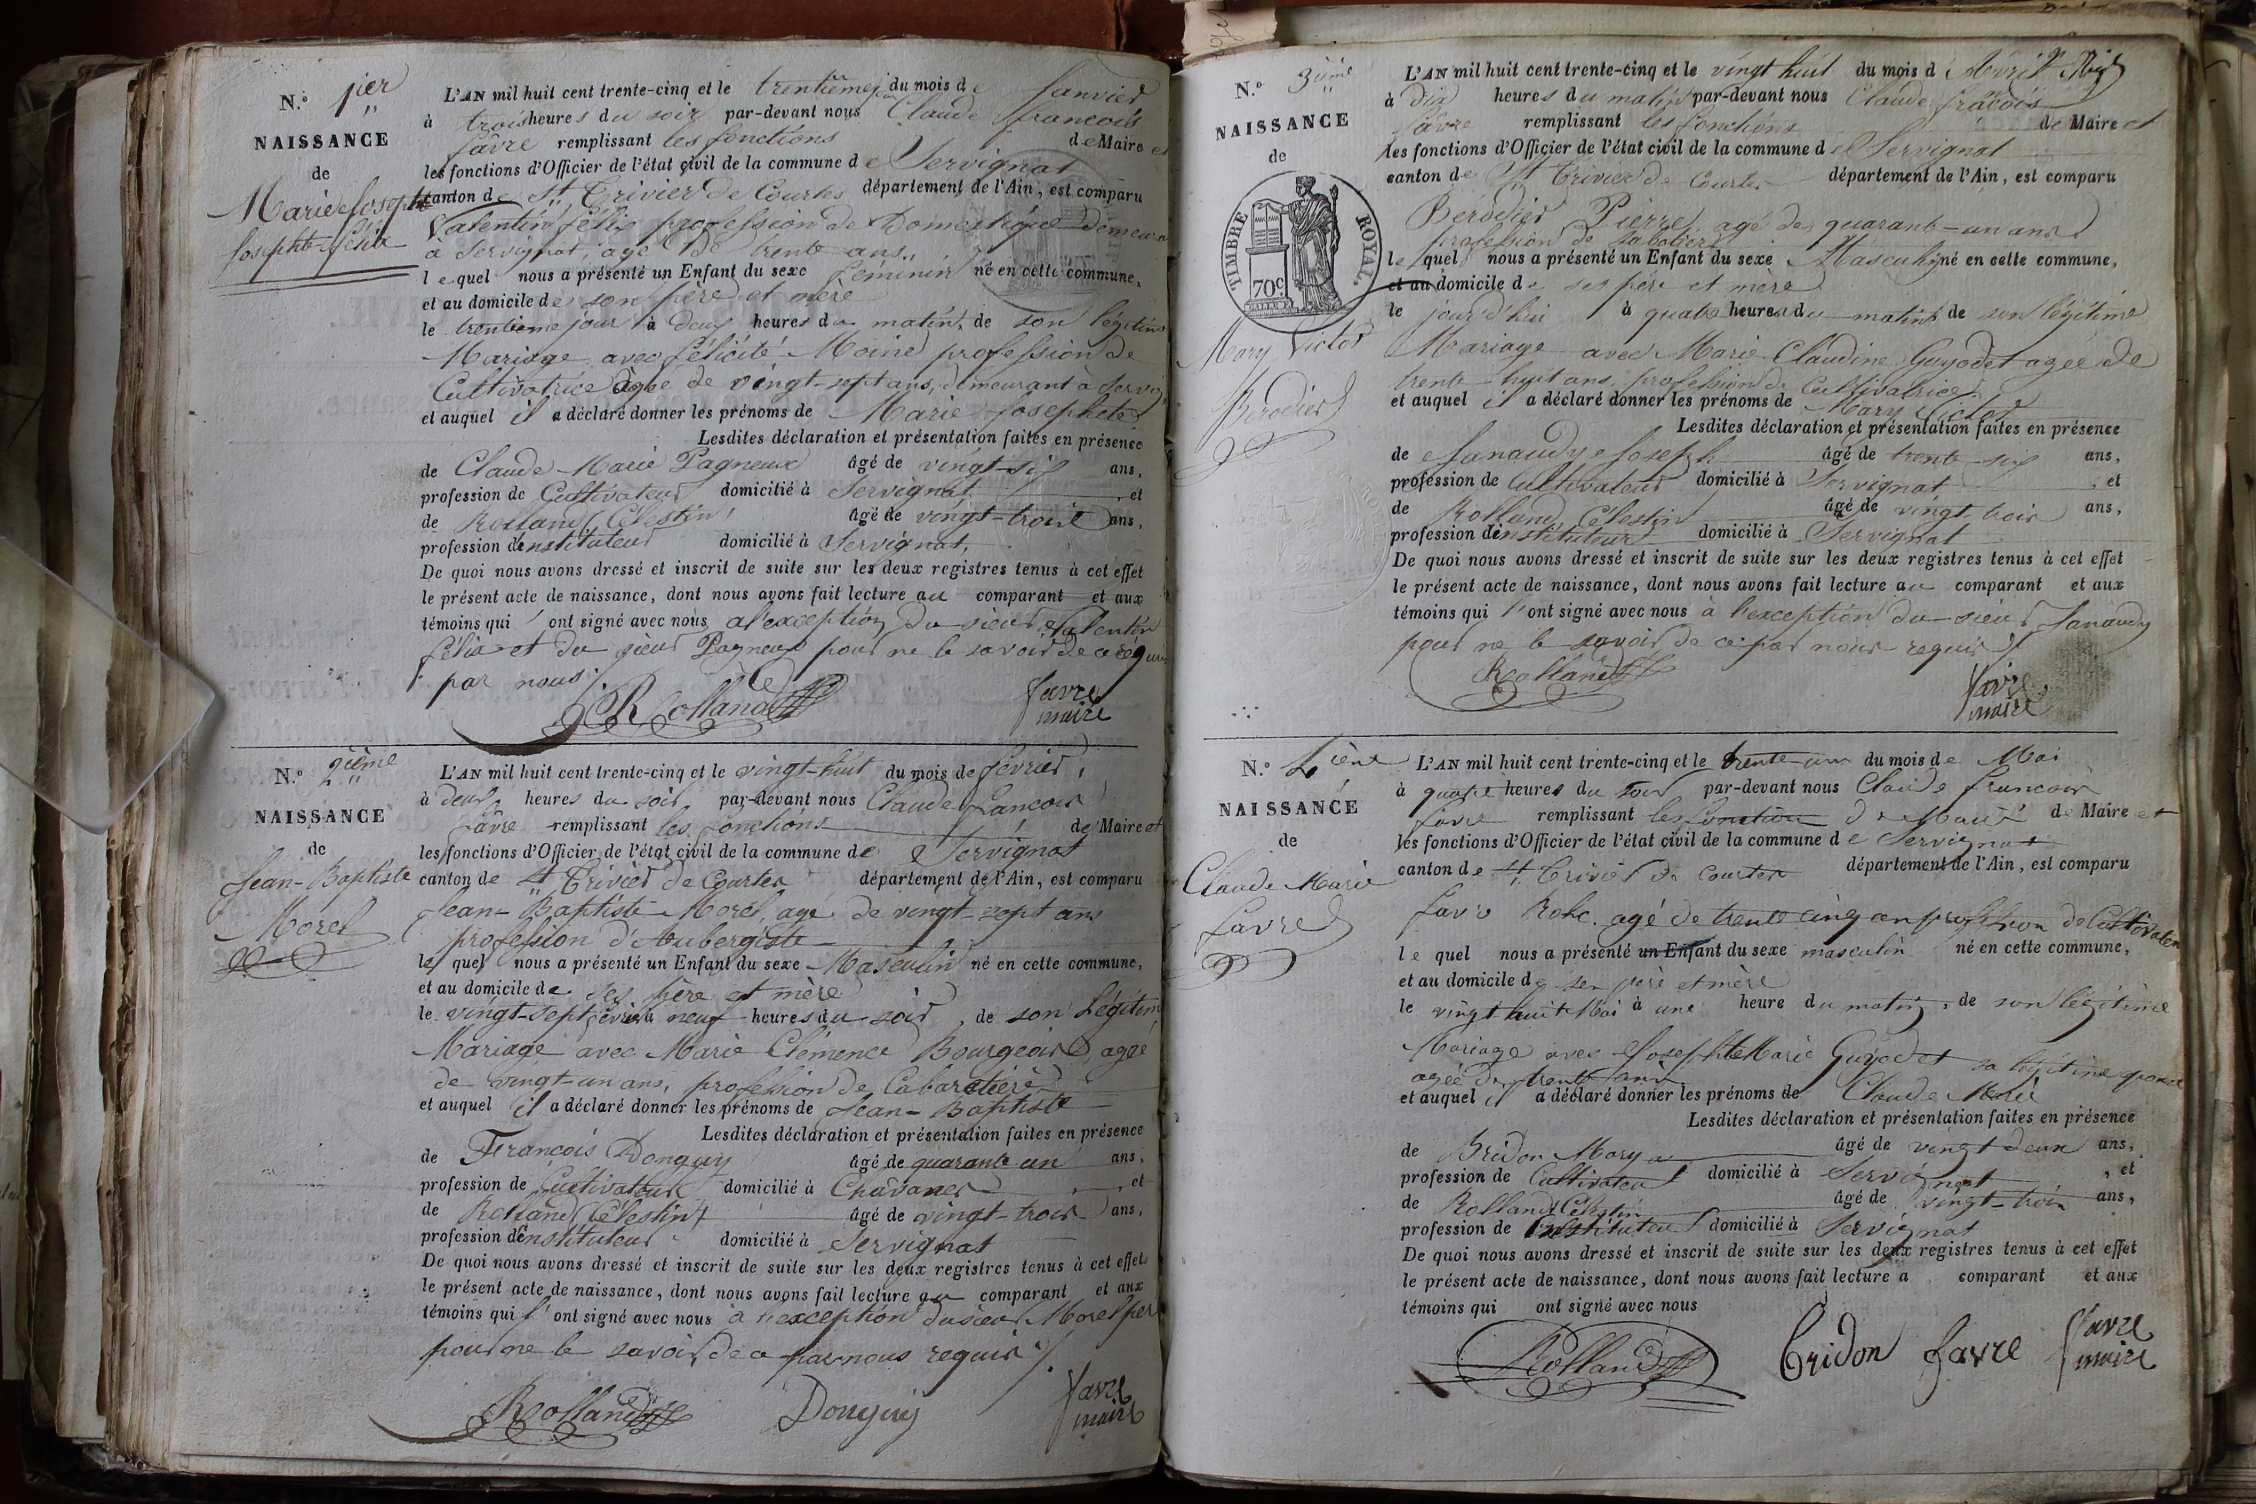 N.º 1ier
NAISSANCE
de
Marie Joseph
Josephte Félix
L'AN mil huit cent trente-cinq et le trentième jour du mois de Janvier
à trois heures du soir par-devant nous Claude françois
favre remplissant les fonctions de Maire et
les fonctions d'Officier de l'état civil de la commune de Servignat
canton de St Trivier de Courtes département de l'Ain, est comparu
Valentin félix profession de Domestique demeurant
à Servignat, agé de trente ans.
lequel nous a présenté un Enfant du sexe féminin né en cette commune,
et au domicile de son père et mère
le trentième jour à deux heures du matin, de son légitime
Mariage avec félicité Moine profession de
Cultivatrice âgée de vingt-sept ans, demeurant à Servi
et auquel il a déclaré donner les prénoms de Marie Josephete
Lesdites déclaration et présentation faites en présence
de Claude-Marie Pagneux âgé de vingt-six ans,
profession de Cultivateur domicilié à Servignat, et
de Rolland Célestin âgé de vingt-trois ans,
profession d'instituteur domicilié à Servignat.
De quoi nous avons dressé et inscrit de suite sur les deux registres tenus à cet effet
le présent acte de naissance, dont nous avons fait lecture au comparant et aux
témoins qui ont signé avec nous al'exception du sieur Valentin
félix et du sieur Pagneux pour ne le savoir de ce requis
par nous.
Rolland favre
maire
N.º 2ième
NAISSANCE
de
Jean-Baptiste
Morel
L'AN mil huit cent trente-cinq et le vingt-huit du mois de février,
à deux heures du soir par-devant nous Claude françois
favre remplissant les fonctions de Maire et
les fonctions d'Officier de l'état civil de la commune de Servignat
canton de St Trivier de Courtes département de l'Ain, est comparu
Jean-Baptiste Morel, agé de vingt-sept ans
profession d'Aubergiste
lequel nous a présenté un Enfant du sexe Masculin né en cette commune,
et au domicile de ses père et mère
le vingt-sept février à neuf heures du soir, de son Légitime
Mariage avec Marie Clémence Bourgeois, agée
de vingt-un ans, profession de Cabaretière
et auquel il a déclaré donner les prénoms de Jean-Baptiste
Lesdites déclaration et présentation faites en présence
de François Donguy âgé de quarante un ans,
profession de Cultivateur domicilié à Chavanes, et
de Rolland Célestin âgé de vingt-trois ans,
profession d'instituteur domicilié à Servignat
De quoi nous avons dressé et inscrit de suite sur les deux registres tenus à cet effet
le présent acte de naissance, dont nous avons fait lecture au comparant et aux
témoins qui l'ont signé avec nous à l'exception du sieur Morel père
pour ne le savoir, de ce par nous requis.
Rolland Donguy favre
maire
N.º 3ième
NAISSANCE
de
TIMBRE ROYAL
70c
Mary Victor
Berodier
L'AN mil huit cent trente-cinq et le vingt huit du mois d'Avril
à dix heures du matin par-devant nous Claude françois
favre remplissant les fonctions de Maire et
les fonctions d'Officier de l'état civil de la commune de Servignat
canton de St Trivier de Courtes département de l'Ain, est comparu
Berodier Pierre, agé de quarante-un ans
profession de Sabotier
lequel nous a présenté un Enfant du sexe Masculin né en cette commune,
et au domicile de ses père et mère
le jour d'hui à quatre heures du matin, de son légitime
Mariage avec Marie Claudine Guyodet agée de
trente huit ans profession de Cultivatrice
et auquel il a déclaré donner les prénoms de Mary Victor
Lesdites déclaration et présentation faites en présence
de Janaudy Joseph âgé de trente-six ans,
profession de Cultivateur domicilié à Servignat, et
de Rolland Célestin âgé de vingt trois ans,
profession d'instituteur domicilié à Servignat
De quoi nous avons dressé et inscrit de suite sur les deux registres tenus à cet effet
le présent acte de naissance, dont nous avons fait lecture au comparant et aux
témoins qui l'ont signé avec nous à l'exception du sieur Janaudy
pour ne le savoir de ce par nous requis
Rolland favre
maire
N.º 4ième
NAISSANCE
de
Claude Marie
favre
L'AN mil huit cent trente-cinq et le trente-un du mois de Mai
à quatre heures du soir par-devant nous Claude françois
favre remplissant les fonctions de Maire de Maire et
les fonctions d'Officier de l'état civil de la commune de Servignat
canton de St Trivier de Courtes département de l'Ain, est comparu
favre Rohc. agé de trente cinq an profession de Cultivateur
lequel nous a présenté un Enfant du sexe masculin né en cette commune,
et au domicile de ses père et mère
le vingt huit Mai à une heure du matin, de son légitime
Mariage avec Josephte Marie Guyodet sa légitime épouse
agée de trente ans
et auquel il a déclaré donner les prénoms de Claude Marie
Lesdites déclaration et présentation faites en présence
de Bridon Mary âgé de vingt deux ans,
profession de Cultivateur domicilié à Servignat, et
de Rolland Célestin âgé de vingt-trois ans,
profession de instituteur domicilié à Servignat
De quoi nous avons dressé et inscrit de suite sur les deux registres tenus à cet effet
le présent acte de naissance, dont nous avons fait lecture a comparant et aux
témoins qui ont signé avec nous
Rolland Bridon favre favre
maire